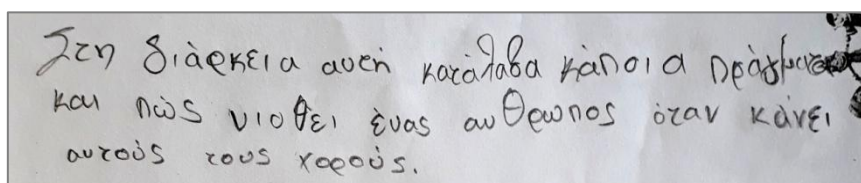 Στη διάρκεια αυτή κατάλαβα κάποια πράγματα
και πώς νιοθει ένας ανθρωπος όταν κάνει
αυτούς τους χορούς.